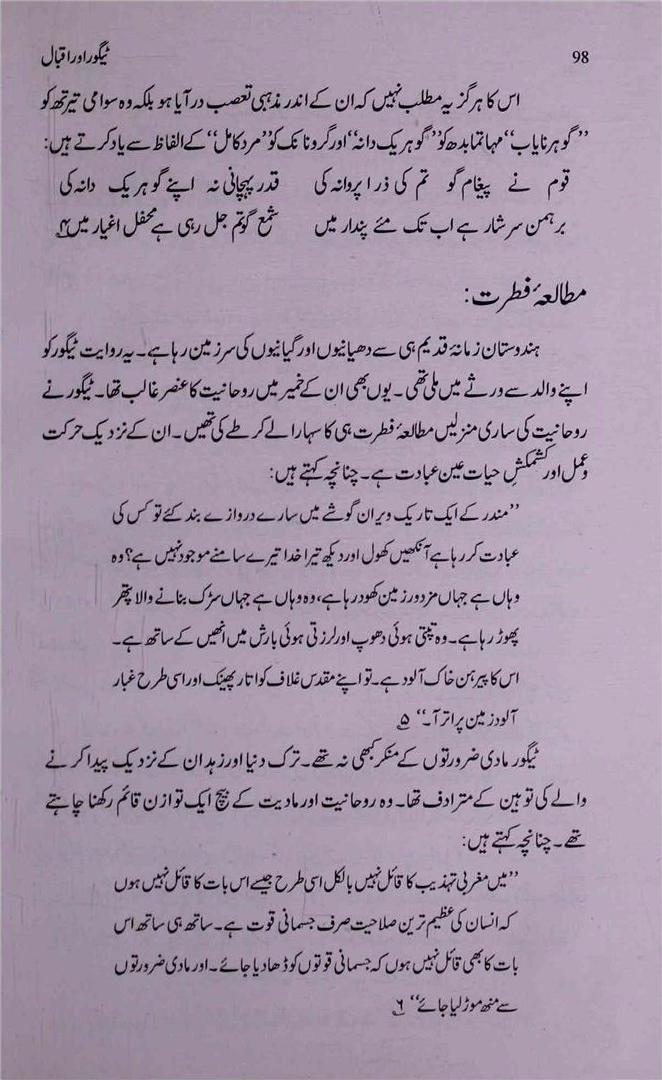 98 ٹیگور اور اقبال
اس کا ہرگز یہ مطلب نہیں کہ ان کے اندر مذہبی تعصب در آیا ہو بلکہ وہ سوامی تیرتھ کو
”گوہر نایاب“ مہاتما بدھ کو ”گوہر یک دانہ“ اور گرو نانک کو ”مرد کامل“ کے الفاظ سے یاد کرتے ہیں:
قوم نے پیغام گو تم کی ذرا پروانہ کی قدر پہچانی نہ اپنے گوہر یک دانہ کی
برہمن سرشار ہے اب تک مئے پندار میں شمع گوتم جل رہی ہے محفل اغیار میں ۴
مطالعۂ فطرت:
ہندوستان زمانۂ قدیم ہی سے دھیانیوں اور گیانیوں کی سرزمین رہا ہے۔ یہ روایت ٹیگور کو
اپنے والد سے ورثے میں ملی تھی۔ یوں بھی ان کے خمیر میں روحانیت کا عنصر غالب تھا۔ ٹیگور نے
روحانیت کی ساری منزلیں مطالعۂ فطرت ہی کا سہارا لے کر طے کی تھیں۔ ان کے نزدیک حرکت
و عمل اور کشمکشِ حیات عین عبادت ہے۔ چنانچہ کہتے ہیں:
”مندر کے ایک تاریک ویران گوشے میں سارے دروازے بند کئے تو کس کی
عبادت کر رہا ہے آنکھیں کھول اور دیکھ تیرا خدا تیرے سامنے موجود نہیں ہے؟ وہ
وہاں ہے جہاں مزدور زمین کھود رہا ہے، وہ وہاں ہے جہاں سڑک بنانے والا پتھر
پھوڑ رہا ہے۔ وہ تپتی ہوئی دھوپ اور لرزتی ہوئی بارش میں انھیں کے ساتھ ہے۔
اس کا پیرہن خاک آلود ہے۔ تو اپنے مقدس غلاف کو اتار پھینک اور اسی طرح غبار
آلود زمین پر اتر آ۔“ ۵
ٹیگور مادی ضرورتوں کے منکر کبھی نہ تھے۔ ترک دنیا اور زہد ان کے نزدیک پیدا کرنے
والے کی توہین کے مترادف تھا۔ وہ روحانیت اور مادیت کے بیچ ایک توازن قائم رکھنا چاہتے
تھے۔ چنانچہ کہتے ہیں:
”میں مغربی تہذیب کا قائل نہیں بالکل اسی طرح جیسے اس بات کا قائل نہیں ہوں
کہ انسان کی عظیم ترین صلاحیت صرف جسمانی قوت ہے۔ ساتھ ہی ساتھ اس
بات کا بھی قائل نہیں ہوں کہ جسمانی قوتوں کو ڈھا دیا جائے۔ اور مادی ضرورتوں
سے منھ موڑ لیا جائے“ ۶